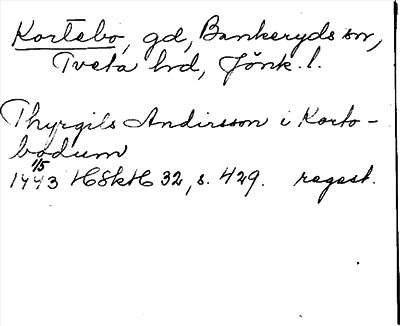 Kortebo, gd, Bankeryds sn,
Tveta hd, Jönk. l.
Thyrgils Andirsson i Korto-
bodum
1/5
1443 HSkH 32, s. 429. regest.